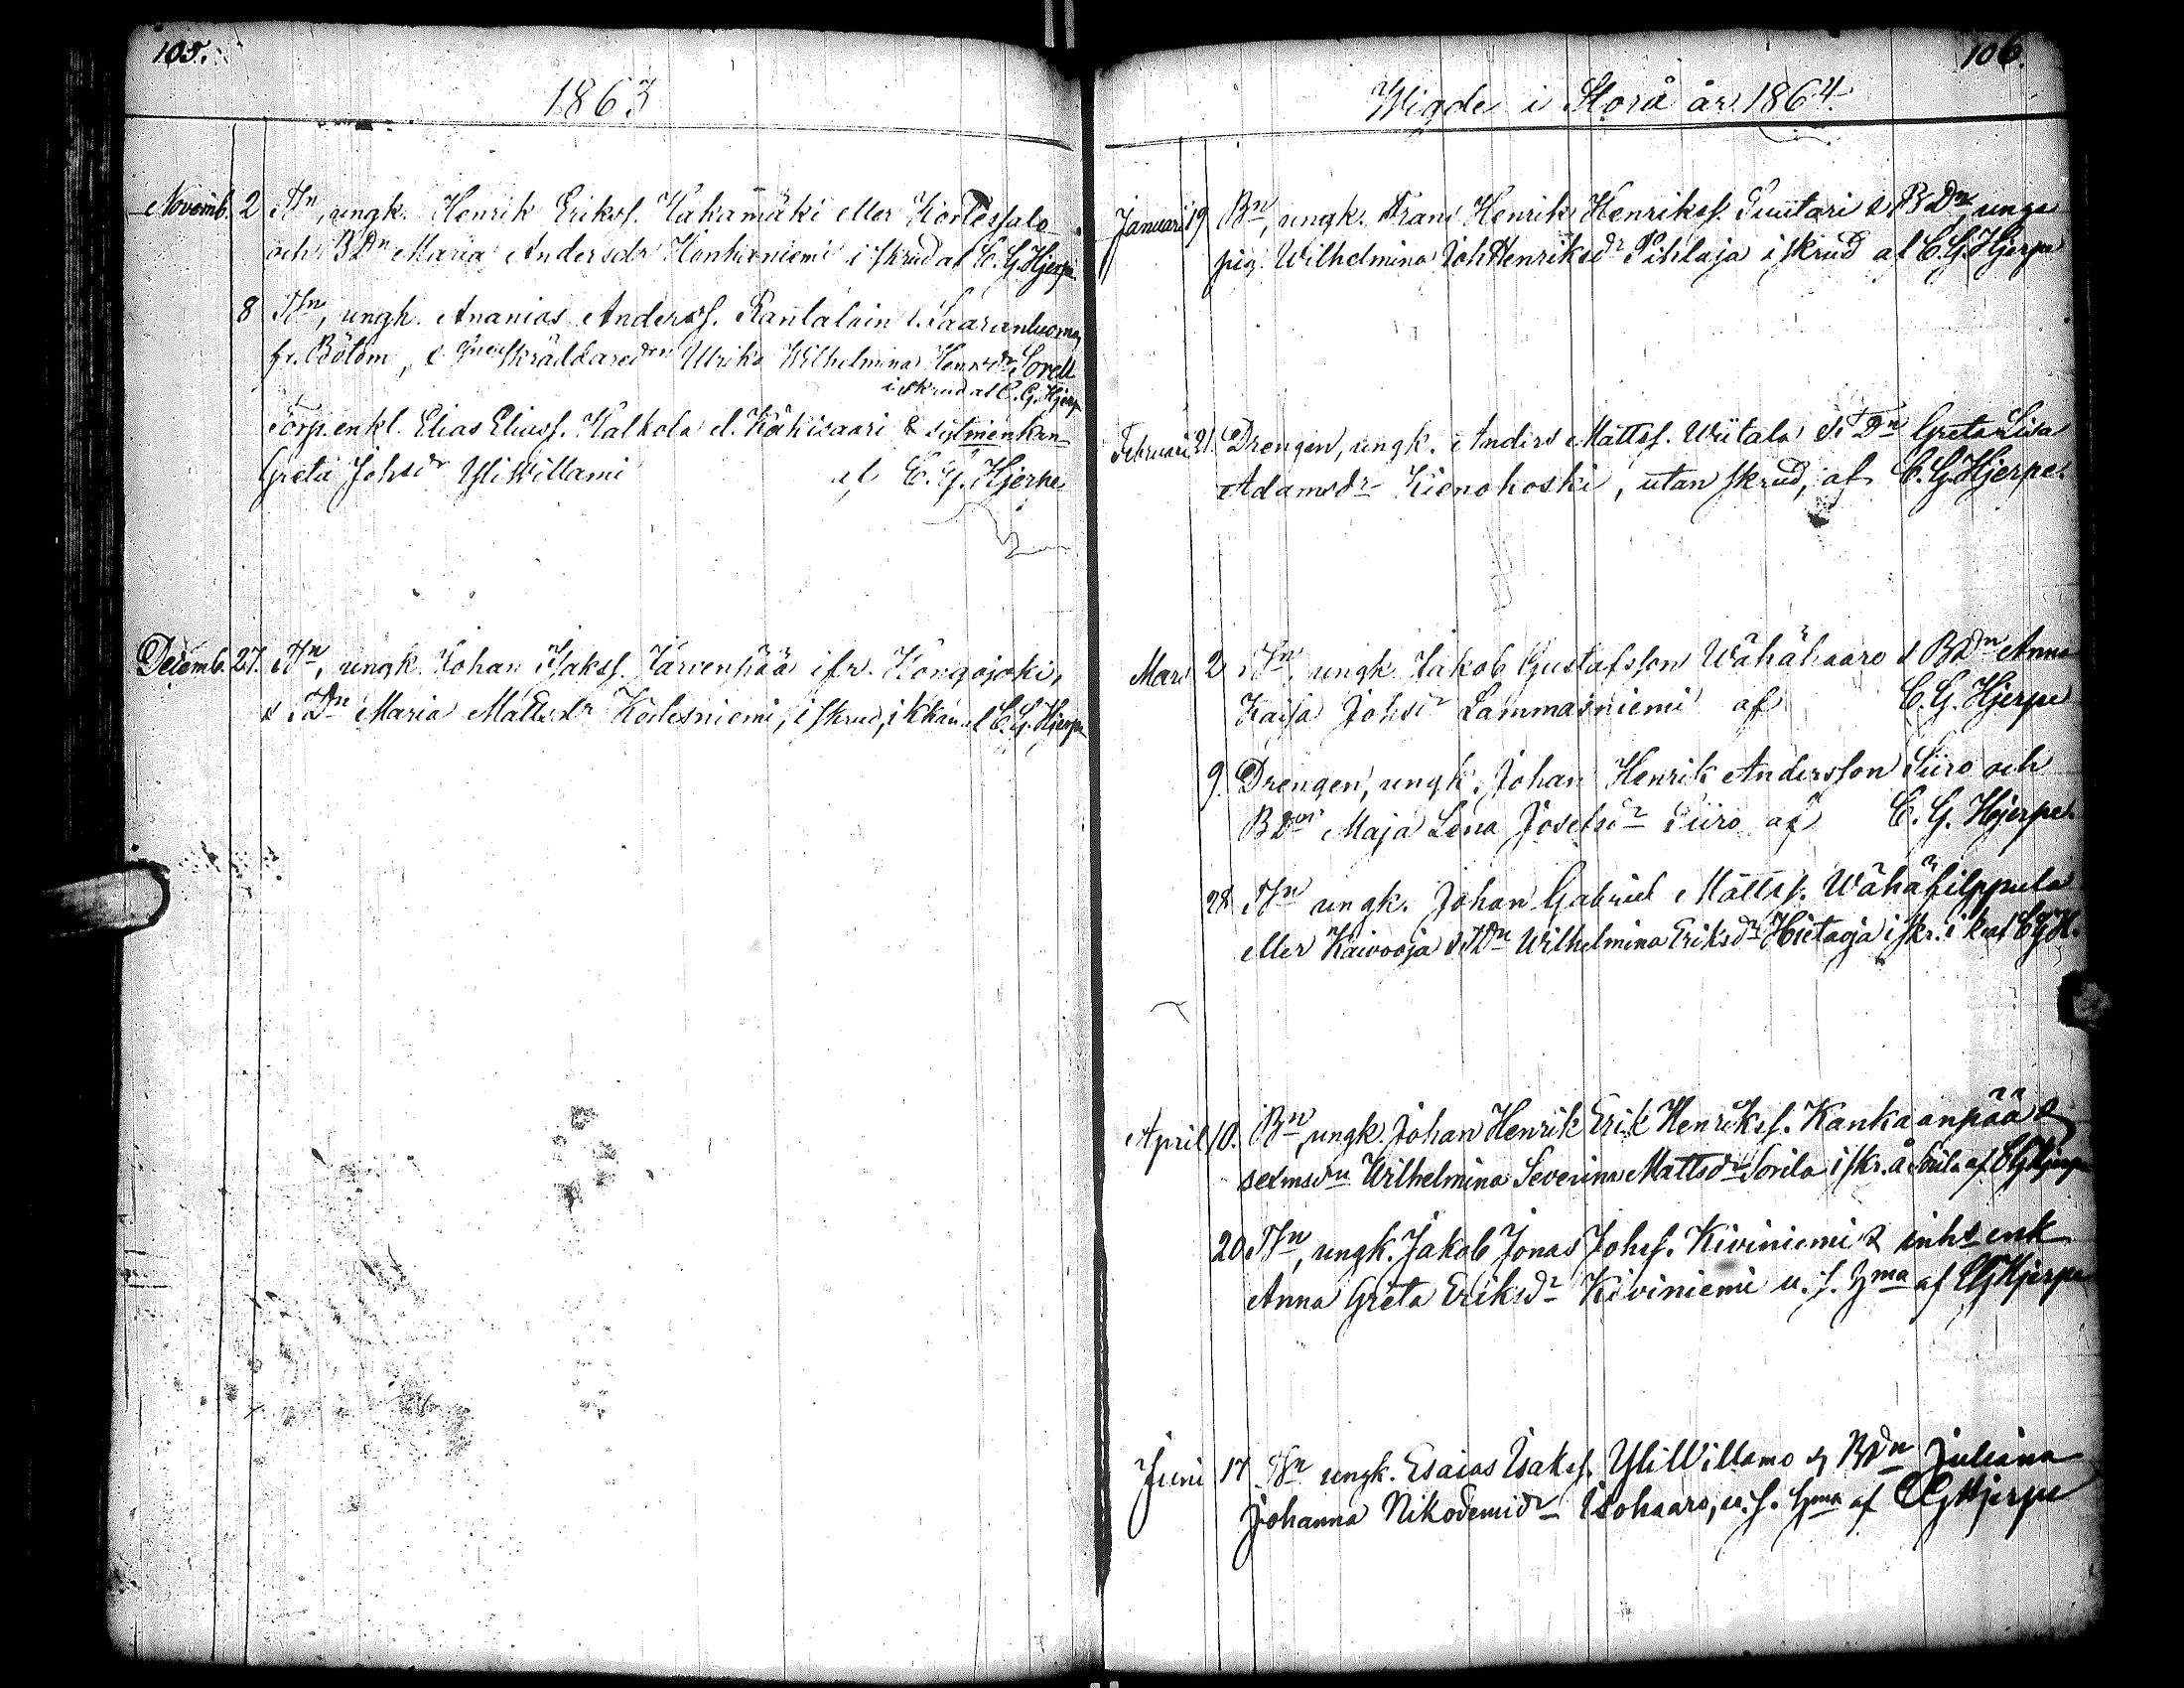 105.
1863
Novemb. 2 Tsn, ungk. Henrik Eriksf. Kakamäki eller Kortessalo
och BDn Maria Andersdr Honkaniemi i skrud af C. G. Hjerpe
8 Tsn, ungk. Ananias Andersf. Rantalain l. Saarenluoma
fr. Bötom, & skräddaredn Ulrika Wilhelmina Henrsdr Sorell
i skrud af C. G. Hjerp
Torp.enkl. Eliasf. Elias Kalkola el. Käkisaari & sytmenkan
Greta Johsdr YliWillami af C. G. Hjerpe
Decemb. 27. Tsn, ungk. Johan Isaksf. Järvenpää ifr. Kongojoki,
& TDn Maria Mattsdr Kodesniemi, i skrud, i af C. G. Hjerpe
106.
Wigde i Storå år 1864.
Januari 19 Bn, ungk. Frans Henrik Henriksf. Suutari & BDn, unga
pig. Wilhelmina JohHenriksdr Pihlaja i skrud af C. G. Hjerpe
Februari 21. Drengen, ungk. Anders Mattsf. Wiitala & TDn Greta Lisa
Adamsdr Kienokoski, utan skrud, af C. G. Hjerpe.
Mars 2 Tsn, ungk. Jakob Gustafsson Wähähaaro & BDn Anna
Kaisa Johsdr Lammasniemi af C. G. Hjerpe
9. Drengen, ungk. Johan Henrik Andersson Siiro och
BDn Maja Lena Josefsdr Siiro af C. G. Hjerpe.
28 Tsn ungk. Johan Gabriel Mattsf. Wähäfilppula
eller Kaivooja & TDn Wilhelmina Eriksdr Hietaoja i skr. i k af CGH.
April 10. Bn, ungk. Johan Henrik Erik Henriksf. Kankaanpää &
sexmsdn Wilhelmina Severina Mattsdr Sorila i skr. å Sorila af CGHjerpe
20 Tsn, ungk. Jakob Jonas Johsf. Kiviniemi & inhs enk
Anna Greta Eriksdr Kiviniemi u. s. hma af CGHjerpe
Juni 17 Tsn ungk. Esaias Isaksf. YliWillamo & BDn Juliana
Johanna Nikodemidr Isohaaro, u. s. hma af CGHjerpe